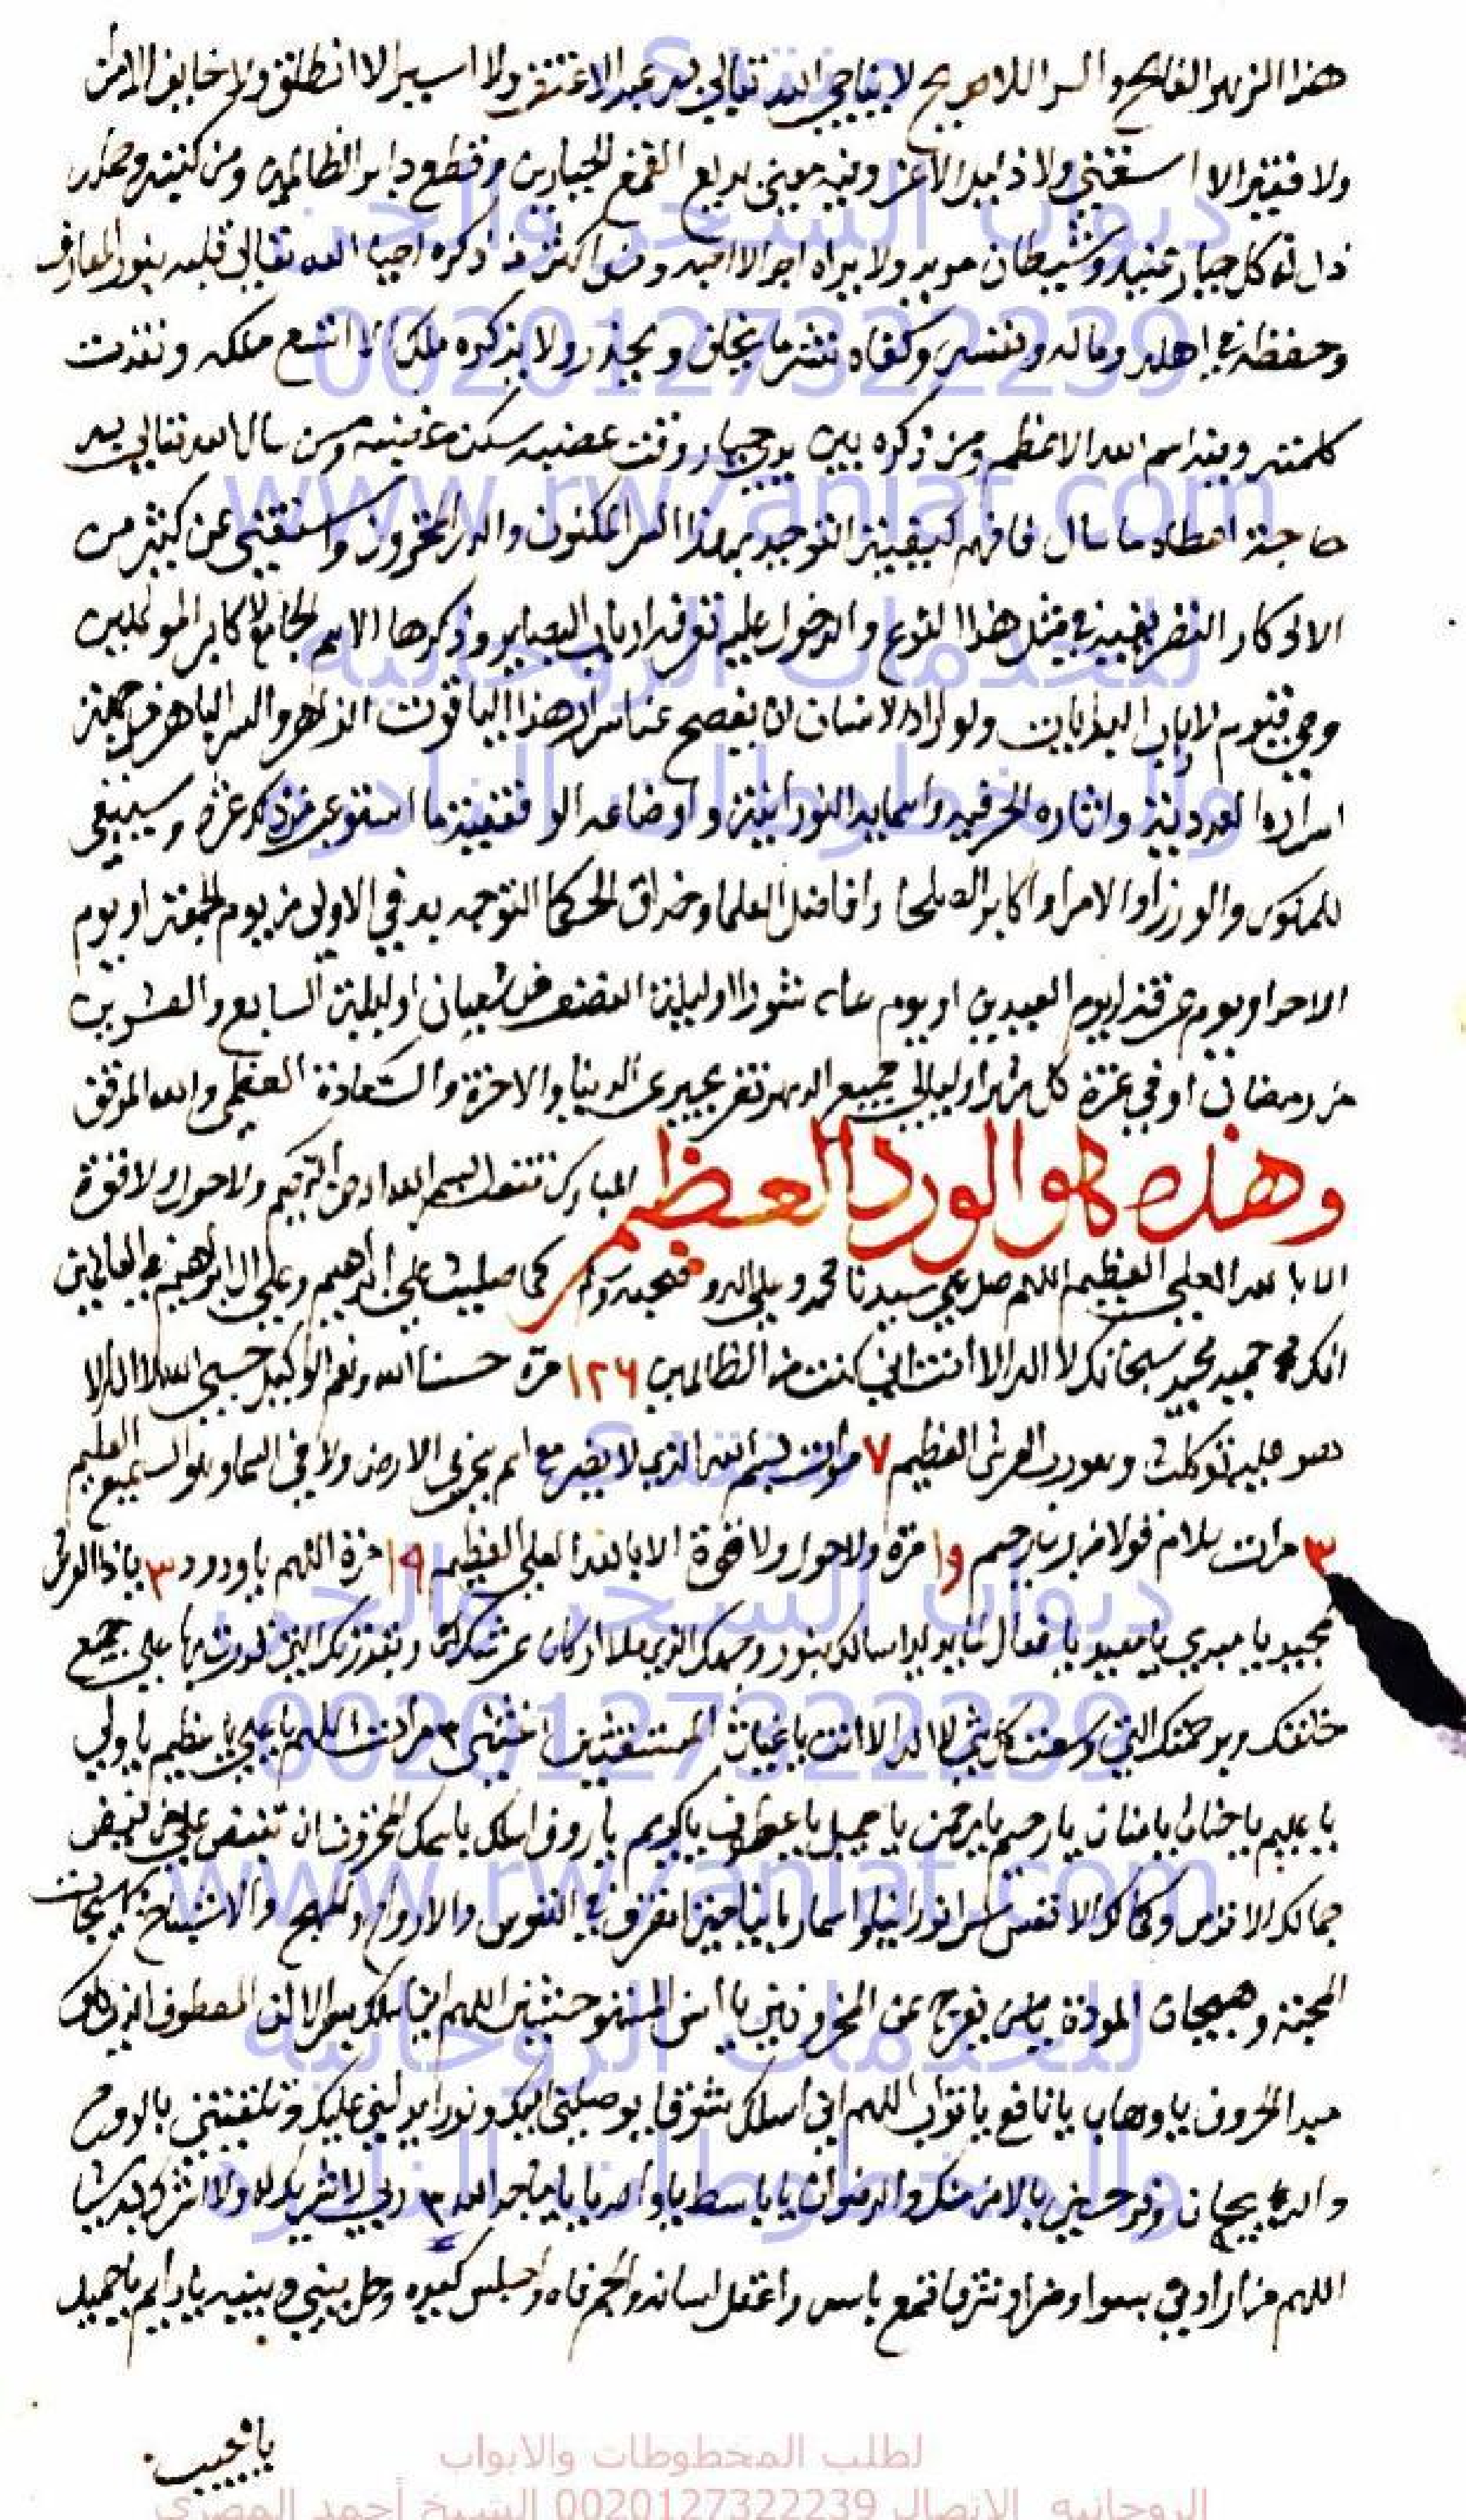 هذا الزهر الفايح والسر اللايح لا يناجي الله تعالى به عبد الا عتق ولا اسير الا انطلق ولا خايف الا امن
ولا فقير الا استغني ولا ذليل الا عز وفيه معني بديع لقمع الجبارين وقطع دابر الظالمين ومن كتبه وحمله
ذل له كل جبار عنيد وشيطان مريد ولا يراه احد الا احبه ومن اكثر من ذكره احيا الله تعالى قلبه بنور المعارف
وحفظه في اهله وماله ونفسه وكفاه شر ما يخاف ويحذر ولا يذكره ملك الا اتسع ملكه ونفذت
كلمته وفيه اسم الله الاعظم ومن ذكره بين يدي جبار وقت غضبه سكن غضبه ومن سال الله تعالى به
حاجة اعطاه ما سال فافهم كيفية التوجه بهذا السر المكنون والدر المخزون واستغني عن كثير من
الاذكار
هذا النوع والدخول عليه تعرفه ارباب البصاير وذكرها الاسم الجامع لاكابر
ولو اراد الانسان ان يفصح عن اسرار هذا الياقوت الزاهر والسر الباهر من جهة
اسراره العددية واثاره الحرفيه واسمايه النورانية واوضاعه الوفقية ما استوعب
وسينبغي
للملوك والوزرا والامرا واكابر الصلحا وافاضل العلما وحذاق الحكما التوجه به في الاولى من يوم الجمعة او يوم
الاحد او يوم عرفة او يوم العيدين او يوم عاشورا او ليلة النصف من شعبان او ليلة السابع والعشرين
من رمضان او في غرة كل شهر او ليالي جميع الدهر تفز بخيري الدنيا والاخرة والسعادة العظمى والله الموفق
وهذه هو الورد العظيم المبارك تقول بسم الله الرحمن الرحيم ولا حول ولا قوة
الا بالله العلي العظيم اللهم صل علي سيدنا محمد وعلي اله وصحبه وسلم كما صليت علي ابراهيم وعلي ال ابراهيم في العالمين
انك حميد مجيد سبحانك لا اله الا انت اني كنت من الظالمين ١٢٦ مرة حسبنا الله ونعم الوكيل حسبي الله لا اله الا
هو عليه توكلت وهو رب العرش العظيم ٧ مرات بسم الله الذي لا يضر مع اسمه شي في الارض ولا في السما وهو السميع العليم
٣ مرات سلام قولا من رب رحيم ١٩ مرة ولا حول ولا قوة الا بالله العلي العظيم ١٩ مرة اللهم يا ودود ٣ يا ذا العرش
المجيد يا مبدي يا معيد يا فعال لما يريد اسالك بنور وجهك الذي ملا اركان عرشك وبقدرتك التي قدرت بها علي جميع
خلقك وبرحمتك التي وسعت كل شي لا اله الا انت يا غياث المستغيثين اغثني ٣ مرات اللهم يا علي يا عظيم يا ولي
يا عليم يا حنان يا منان يا رحيم يا رحمن يا جميل يا عطوف يا كريم يا روف اسالك باسمك المخزون ان تفيض علي من فيض
جمالك الاقدس وكمالك الانفس سرا نورانيا واسما ربانيا حتى اتصرف في النفوس والارواح والمهج والاشباح بهيجات
المحبة وهيجات المودة يا من يفرج عن المحزونين يا انس المستوحشين اللهم اني اسالك بسر الالف المعطوف الذي هو
مبدا الحروف يا وهاب يا نافع يا تواب اللهم اني اسالك شوقا يوصلني اليك ونورا يدلني عليك وتلقيني بالروح
والريحان وترحمني بالامن منك والرضوان يا باسط يا والد يا ماجد الله ٣ ربي لا شريك له ولا اشرك به شيا
اللهم من اراد بي سوا او ضرا او شرا فاقمع باسه واعقل لسانه والجم فاه واحبس كيده وحل بيني وبينه يا دايم يا حميد
يا مجيب
منتدى
ديوان السحر والجن
0020127322239
www.rw7aniat.com
للخدمات الروحانيه
والمخطوطات النادره
منتدى
ديوان السحر والجن
0020127322239
www.rw7aniat.com
للخدمات الروحانيه
والمخطوطات النادره
لطلب المخطوطات والابواب
الروحانيه الاتصال 0020127322239 الشيخ أحمد المصري